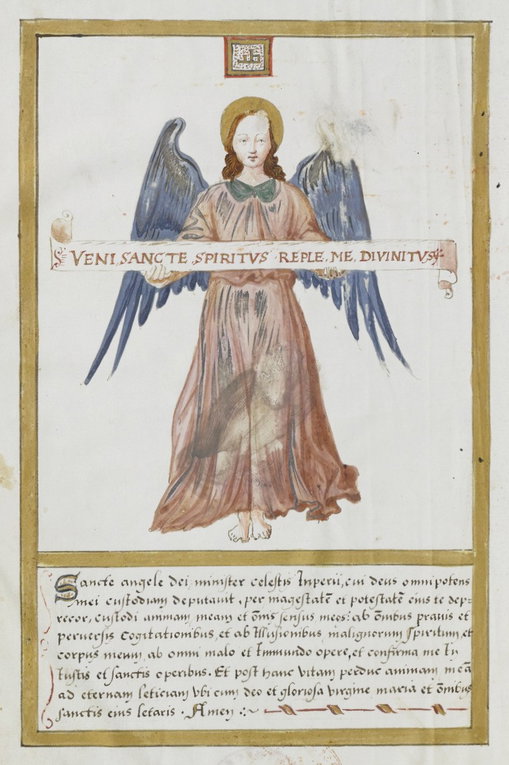 VENI SANCTE SPIRITVS REPLE ME DIVINITVS
Sancte angele dei minister celestis Inperii, cui deus omnipotens
mei custodiam deputauit, per magestatē et potestatē eius te dep-
recor, custodi animam meam et oēs sensus meos: ab ōnibus prauis et
peruersis Cogitationibus, et ab Illusionibus, malignorum spirituum, et
corpus meum, ab omni malo et Inmundo opere, et confirma me In
Iustis et sanctis operibus. Et post hanc vitam perduc animam meā
ad eternam leticiam vbi cum deo et gloriosa virgine maria et ōnibus
sanctis eius letaris. Amen